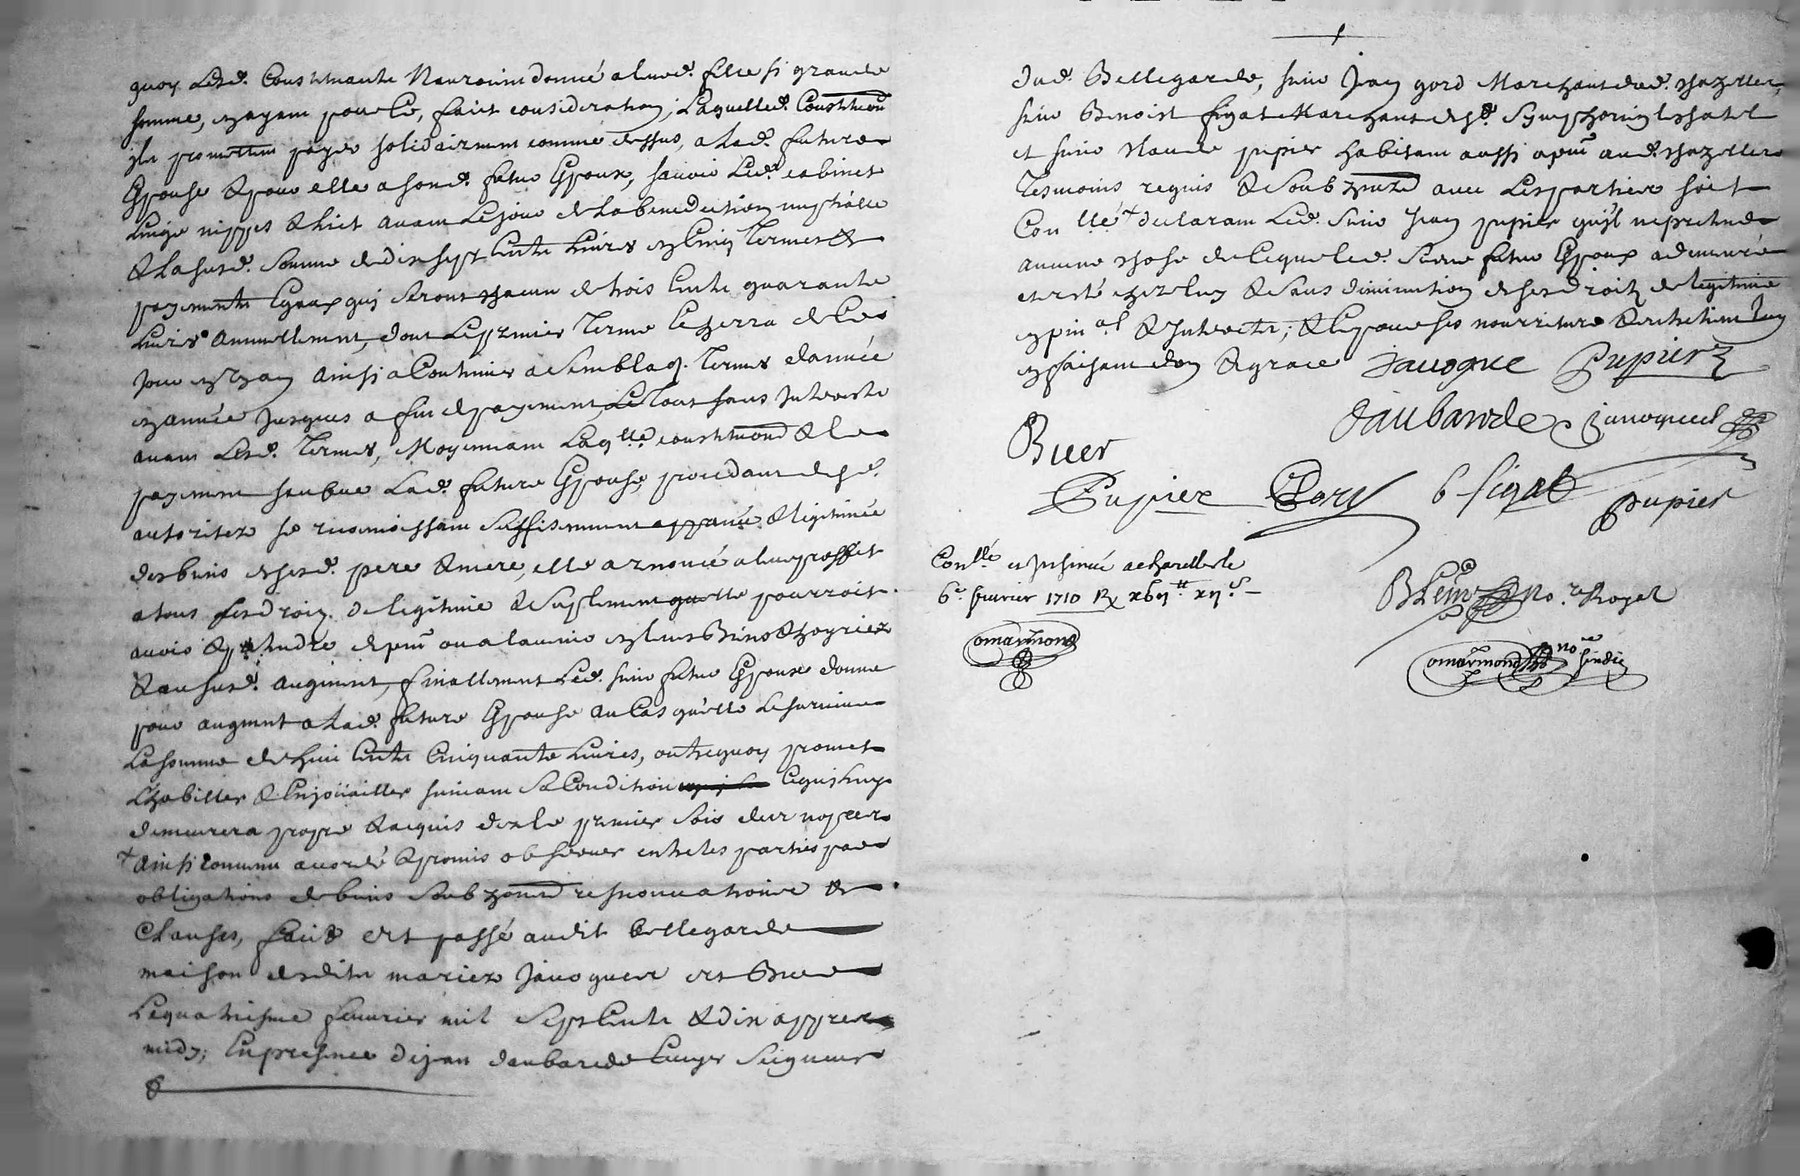 quoy Lesd. Constituants N'auroient donné a leurd. fille si grande
somme, n'ayant pour Ce, fait consideration, Laquelle d. Constitution
ils promettent payer solidairement comme dessus, a Lad. future
Epouse & pour elle a sond. futur Epoux, sçavoir Led. cabinet
Linge nippes & lict avant Le jour de La benediction nuptialle
& La susd. somme de dix sept Cents Livres en Cinq Termes &
payements Egaux qui seront chacun de trois Cents quarante
Livres annuellement, dont Le premier Terme Echerra de Ce
jour en un an ainsi a Continuer a semblab. Termes d'année
en année jusques a fin de payement, Le Tout sans Interests
avant Lesd. Termes, Moyennant Laqlle constitution & le
payement Lad. future Epouse, procedant de sd.
autoritez se reconnoissant suffisamment appanée & legitimée
des biens de sesd. pere & mere, elle a renoncé a leur proffict
a tous sesd. droits de legitime & suplement qu'elle pourroit
avoir & pretendre de pnt ou a l'avenir en leurs Biens & hoyries
& au susd. augment, finallement Led. sieur futur Epoux donne
pour augment a Lad. future Epouse au Cas qu'elle Le survive
La somme de huit Cents Cinquante Livres, outre quoy promet
L'habiller & Enjoüailler suivant Sa Condition Ce qui Luy
demeurera propre & acquis dez le premier soir des nopces
+ Ainsi convenu accordé & promis observer entre les parties par
obligations de biens soubmissions renonciations &
Clauses, fait & et passé audit bellegarde
maison desdits mariez Javoguer et Buer
Le quatriesme feuvrier mil sept Cents & dix apprez
midy; En presence de jean daubarede Escuyer Seigneur
&
dud. Bellegarde, sieur Jean gord Marchant dud. Chazelles,
sieur Benoist figat Marchant de st. Simphorien le chatel
et sieur Claude pupier habitant aussi a pnt aud. Chazelles
Tesmoins requis & soubsignez avec Les parties soit
Conllé + declarant Led. sieur Jean pupier qu'il ne pretend
aucune chose de Ce que led. sieur futur Epoux a demeuré
et resté chez luy & sans diminution de ses droits de legitime
en pinal & Interests; & Ce pour ses nourriture & entretien Luy
en faisant don & grace Javogue Pupier
Daubarede Javogues
Buer
Pupier Gord b figat pupier
Conllé et Insinué a chazelles le
6e. fevrier 1710 Rx xbij tt xij s
omarmond
No.re Royal
omarmond no.re sindic